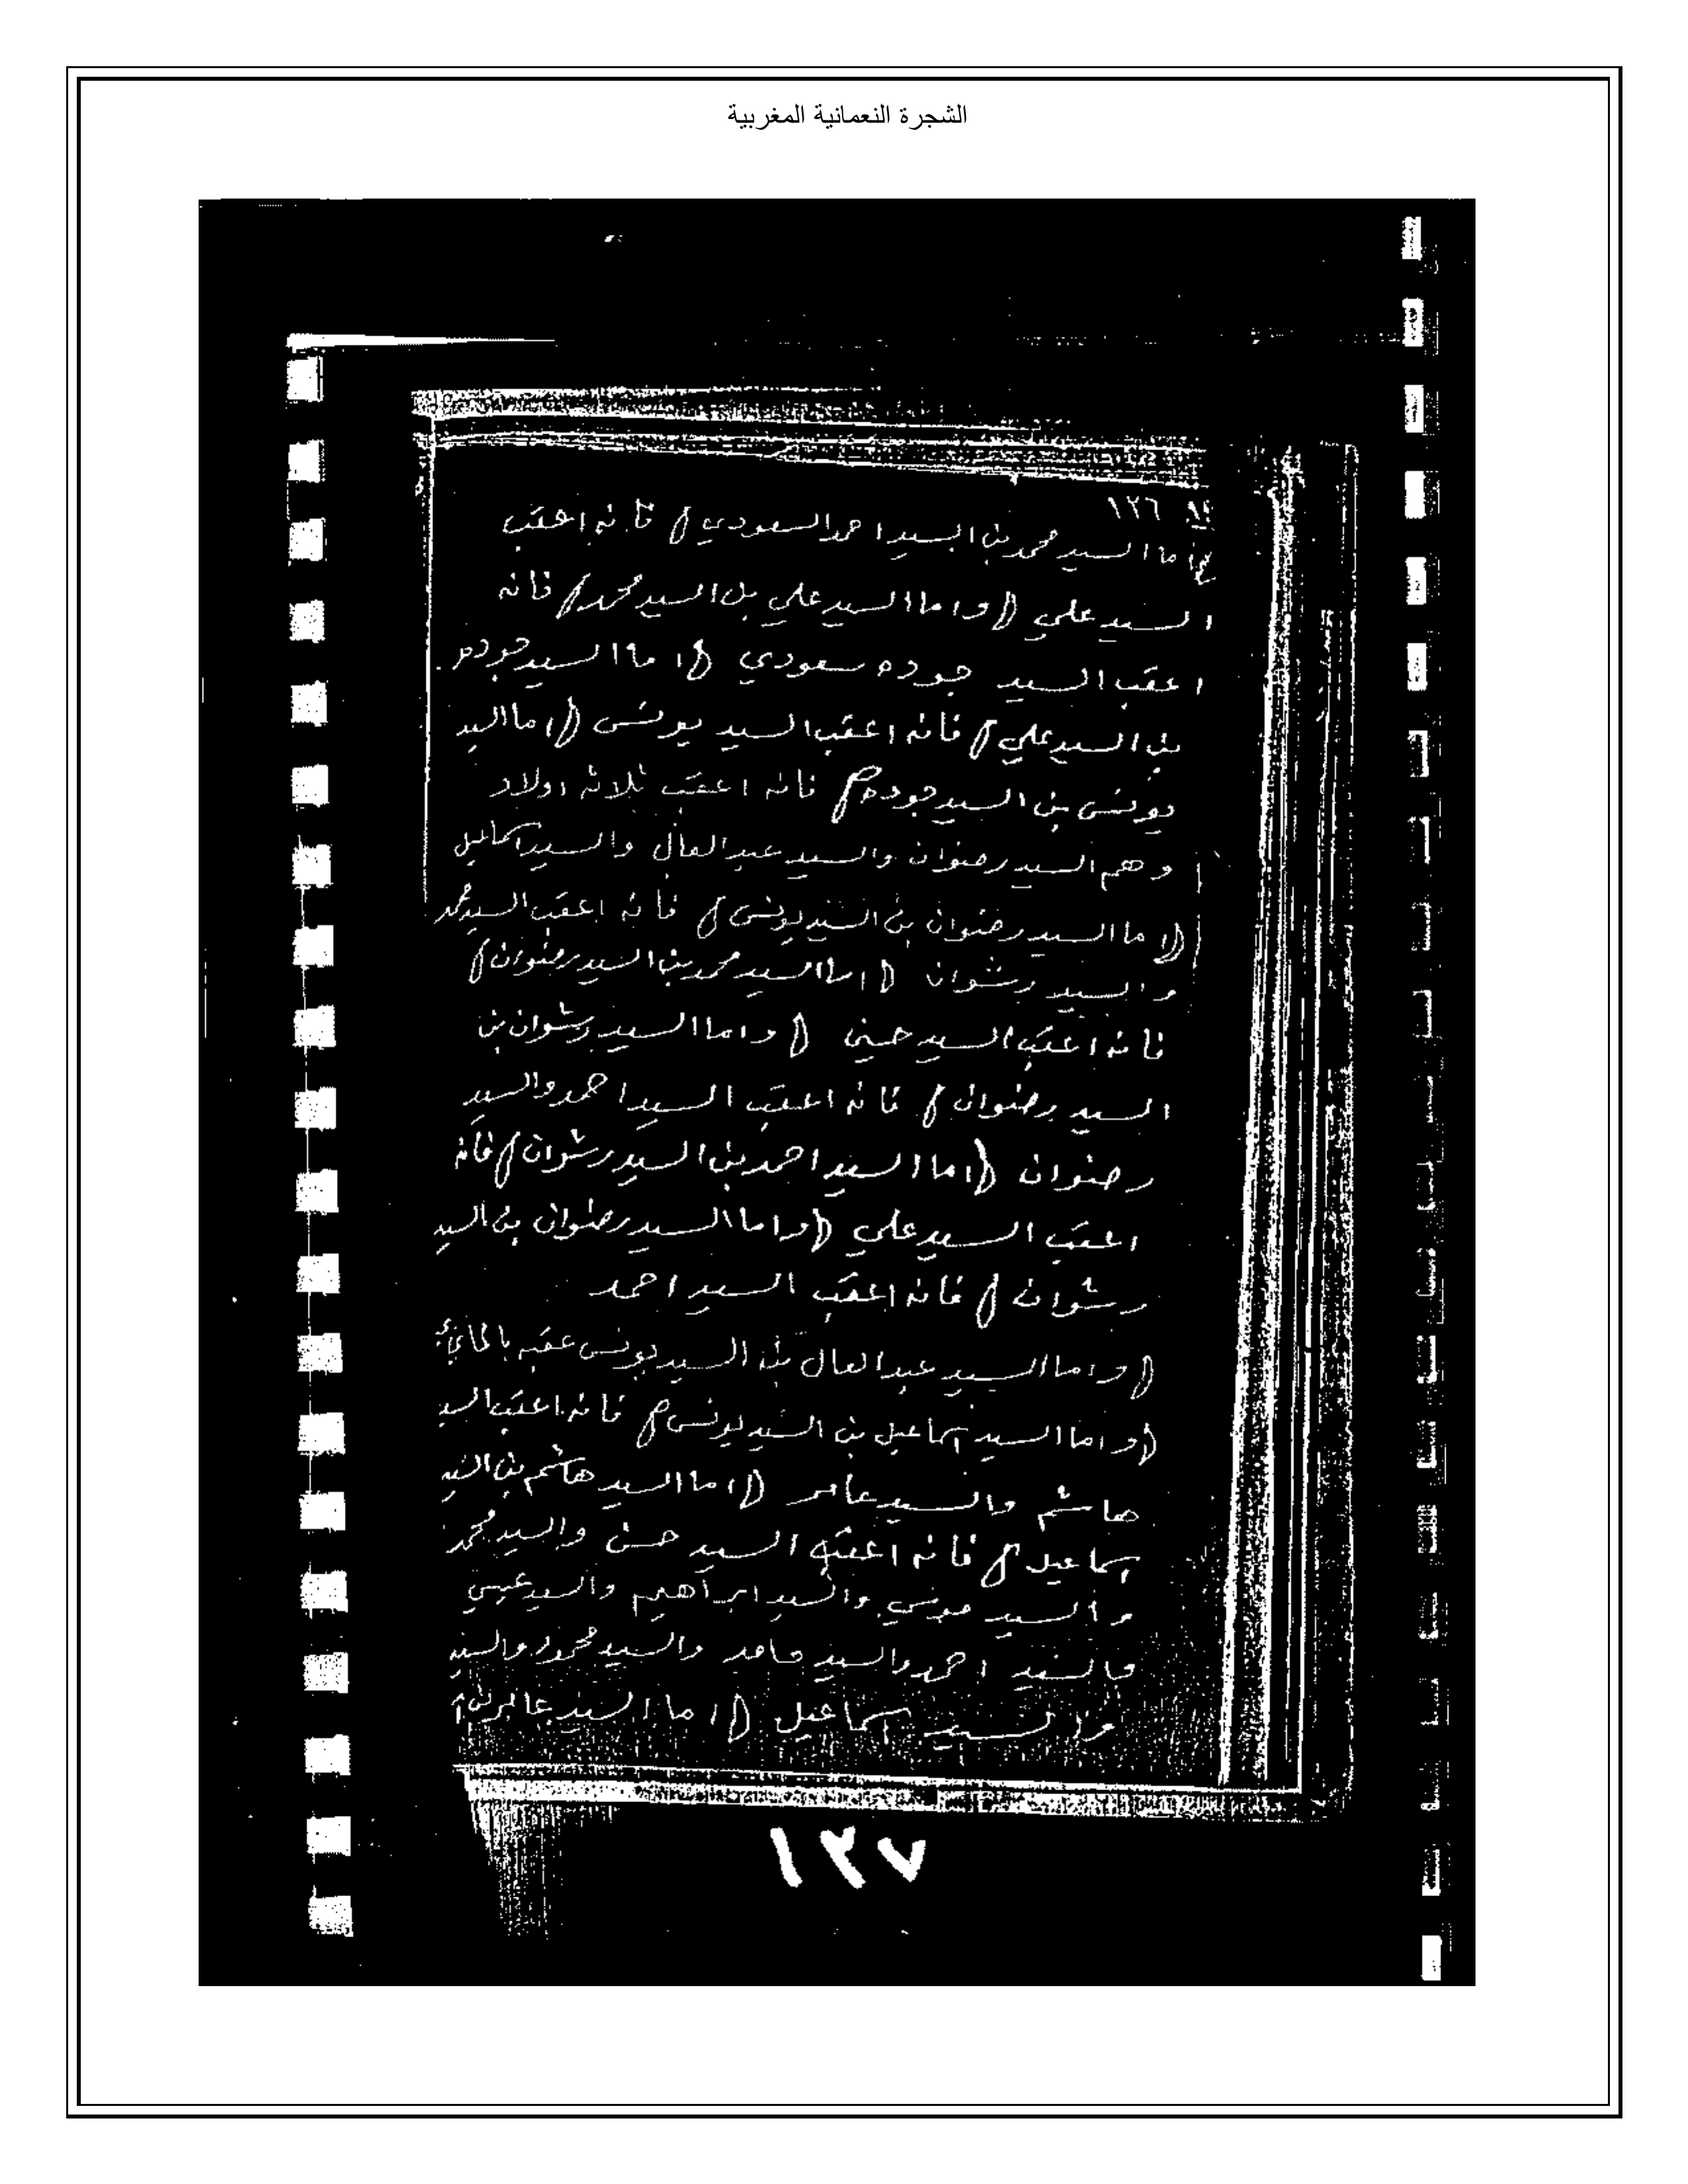 الشجرة النعمانية المغربية
١٢٦
اما السيد محمد بن السيد احمد السعودي) فانه اعقب
السيد علي (واما السيد علي بن السيد محمد) فانه
اعقب السيد جوده سعودي (اما السيد جوده
بن السيد علي) فانه اعقب السيد يونس (اما السيد
يونس بن السيد جوده) فانه اعقب ثلاثه اولاد
وهم السيد رضوان والسيد عبد العال والسيد اسماعيل
(اما السيد رضوان بن السيد يونس) فانه اعقب السيد محمد
والسيد رشوان (اما السيد محمد بن السيد رضوان)
فانه اعقب السيد حسين (واما السيد رشوان بن
السيد رضوان) فانه اعقب السيد احمد والسيد
رضوان (اما السيد احمد بن السيد رشوان) فانه
اعقب السيد علي (واما السيد رضوان بن السيد
رشوان) فانه اعقب السيد احمد
(واما السيد عبد العال بن السيد يونس عقبه
(واما السيد اسماعيل بن السيد يونس) فانه اعقب السيد
هاشم والسيد عامر (اما السيد هاشم بن السيد
اسماعيل) فانه اعقب السيد حسن والسيد محمد
والسيد موسي والسيد ابراهيم والسيد عيسي
والسيد احمد والسيد حامد والسيد محمود والسيد
والسيد اسماعيل (اما السيد
١٢٧